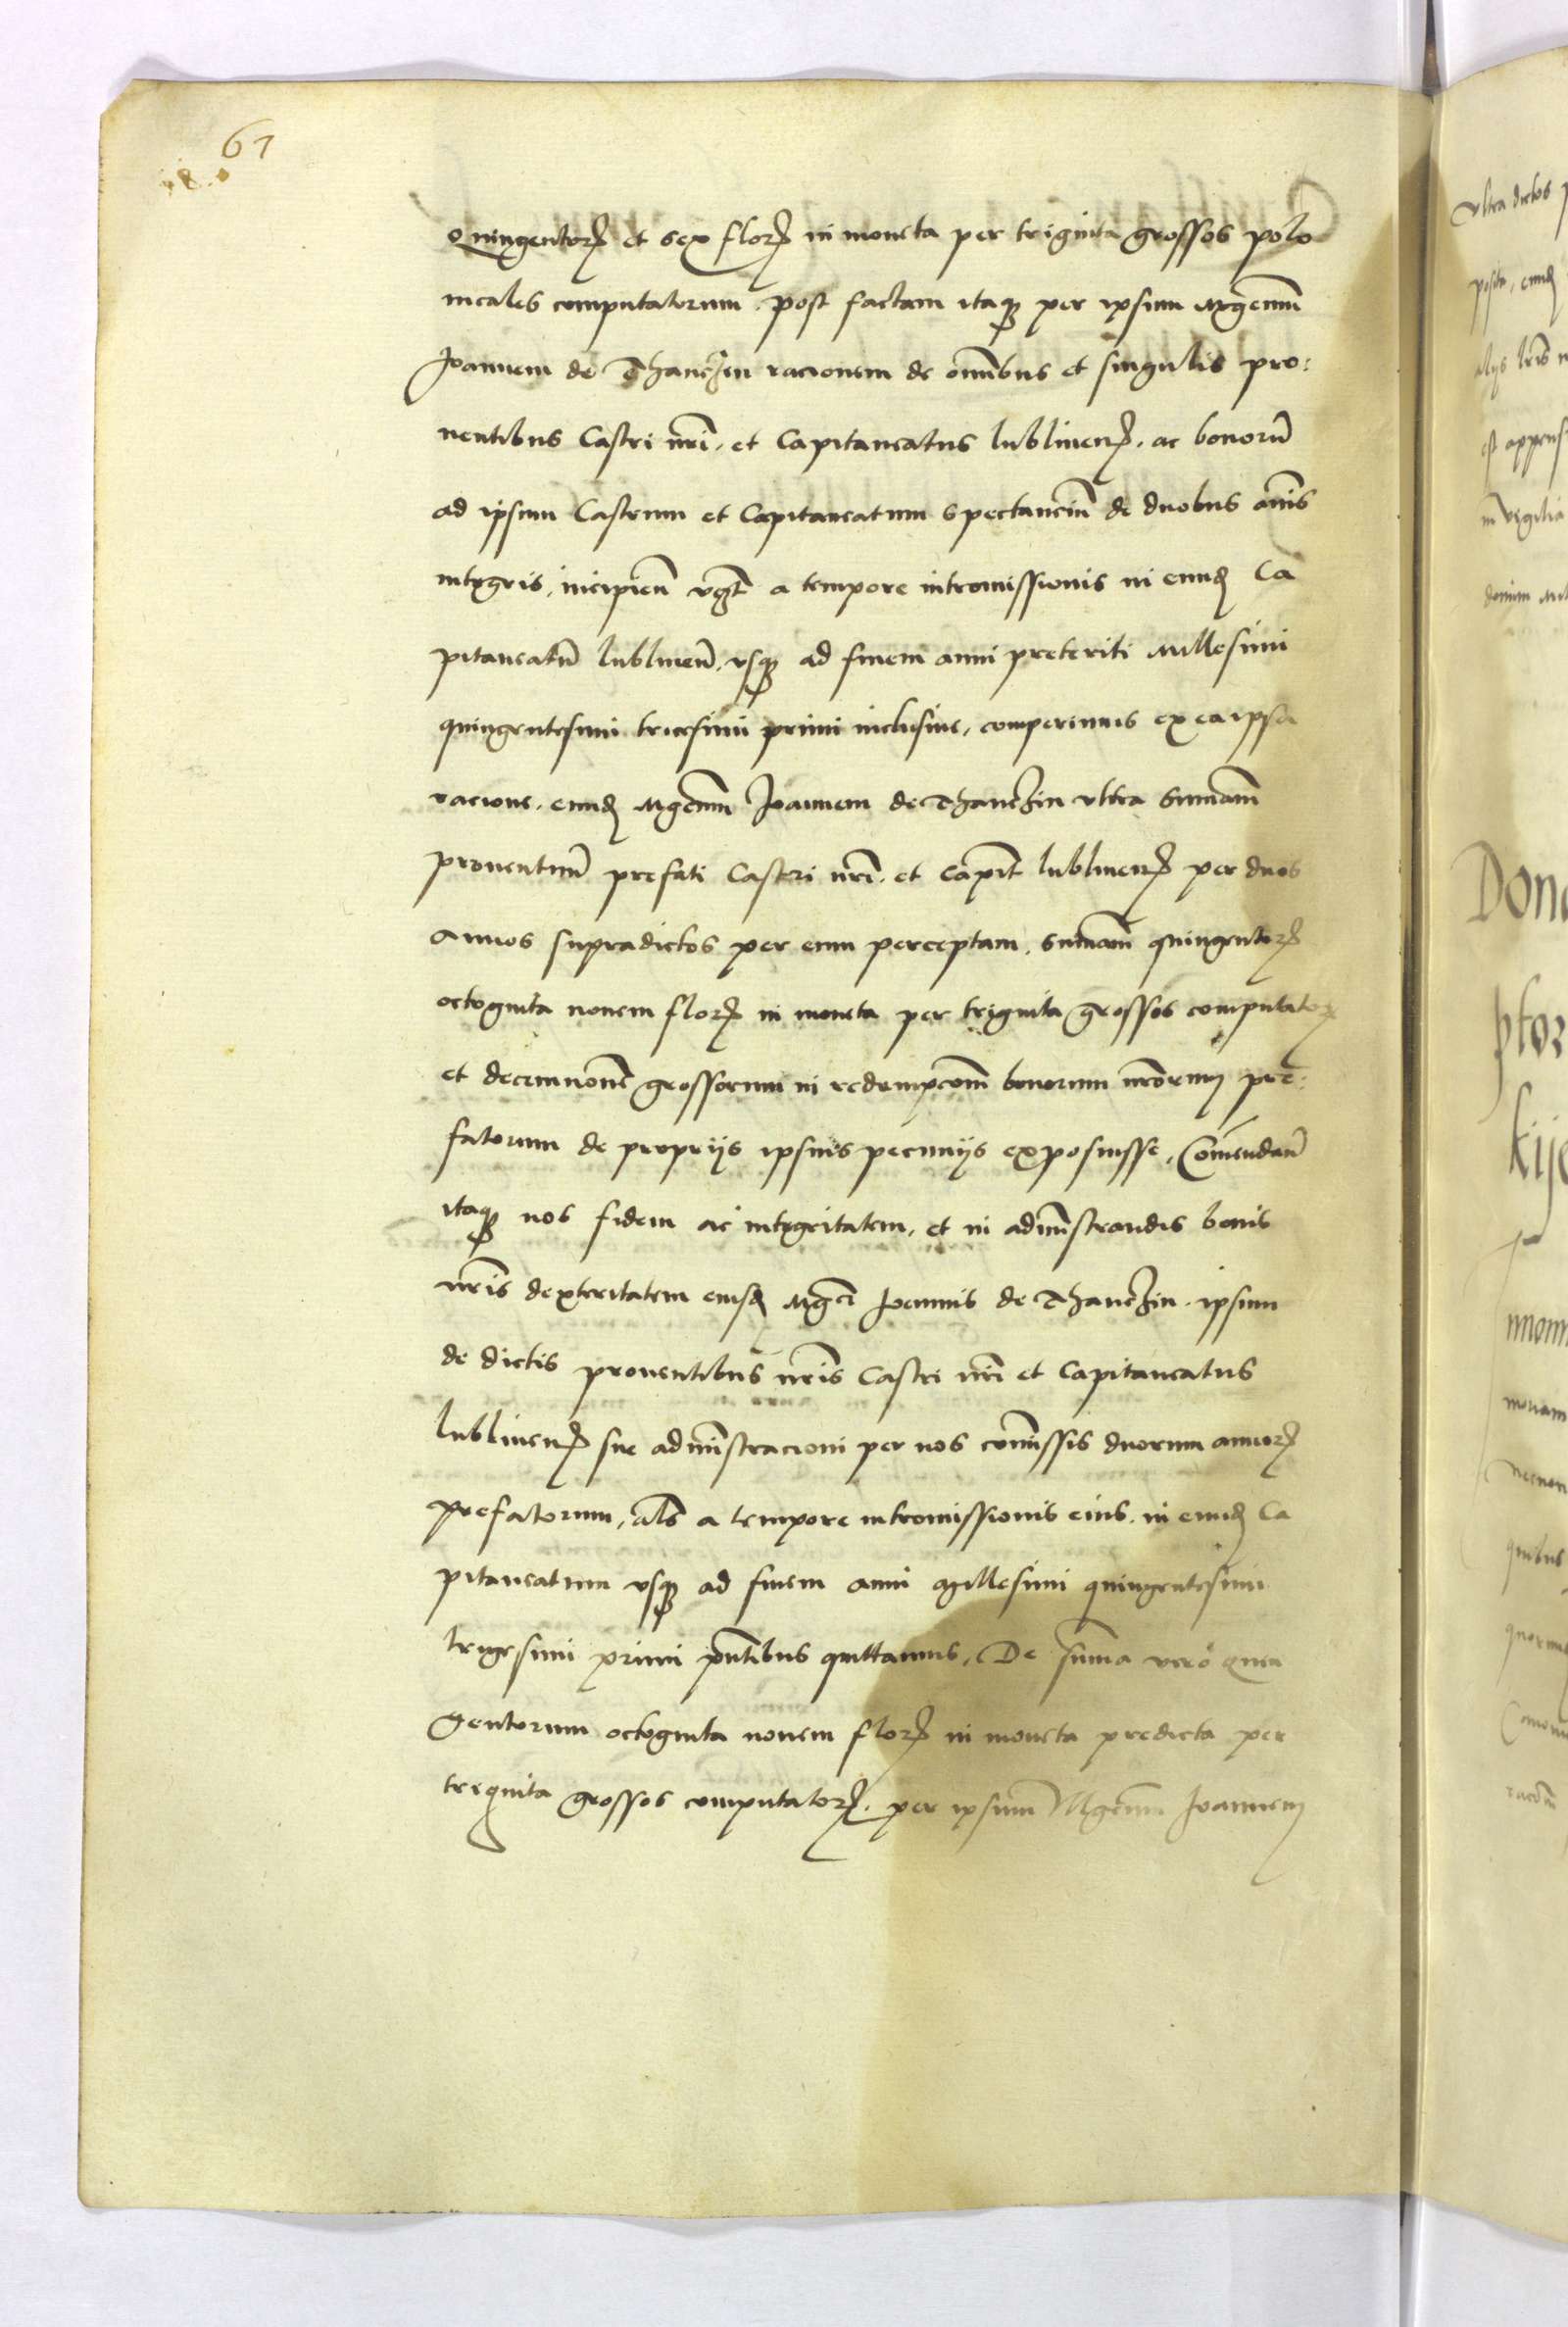 61
18.
Quingentoꝝ et sex floꝝ in moneta per triginta grossos polo
nicales computatorum. post factam itaqꝫ per ipsum Mgcum̄
Joannem de Thanczin racionem de om̄ibus et singulis pro:
uentibus Castri nr̄i. et Capitaneatus lublineñ. ac bonorū
ad ipsum Castrum et Capitaneatum spectanciū de duobus añis
integris, incipień vꝫt a tempore intromissionis in eundꝫ Ca
pitaneatū lublineñ. vsqꝫ ad finem anni preteriti Millesimi
quingentesimi tricesimi primi inclusiue, comperimus ex ea ipsa
racione. eundꝫ Mgcum̄ Joannem de Thanczin vltra sum̄am
prouentuū prefati Castri nr̄i. et Capit̄ lublineñ per duos
annos supradictos per eum perceptam. sum̄am quingentoꝝ
octoginta nouem floꝝ in moneta per triginta grossos computatoꝝ
et decemnouē grossorum in redempcōem bonorum nr̄orum pre:
fatorum de proprijs ipsius pecunijs exposuisse, Com̄endań
itaqꝫ nos fidem ac integritatem, et in admīstrandis bonis
nr̄is dexteritatem eiusdꝫ Mgc̄i Joannis de Thanczin. ipsum
de dictis prouentibus nr̄is Castri nr̄i et Capitaneatus
lublineñ sue admīstracioni per nos com̄issis duorum annoꝝ
prefatorum, als̄ a tempore intromissionis eius. in eundꝫ Ca
pitaneatum vsqꝫ ad finem anni Millesimi quingentesimi
trigesimi primi pn̄tibus quittamus. De sum̄a vero quin
gentorum octoginta nouem floꝝ in moneta predicta per
triginta grossos computatoꝝ. per ipsum Mgcum̄ Joannem
vltra dictos
posita, eundꝫ
alijs lr̄is
est appens
in vigilia
Dona
ptor
kije
quibus